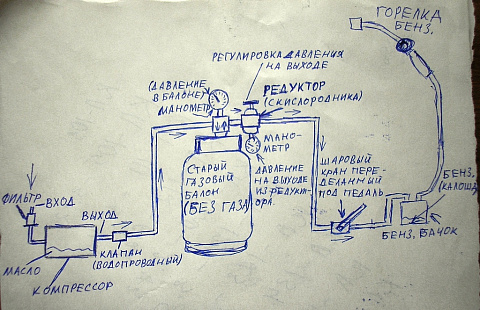 ГОРЕЛКА
БЕНЗ.
РЕГУЛИРОВКА ДАВЛЕНИЯ
НА ВЫХОДЕ
(ДАВЛЕНИЕ
В БАЛОНЕ)
МАНОМЕТР
РЕДУКТОР
(С КИСЛОРОДНИКА)
МАНО-
МЕТР
ДАВЛЕНИЕ
НА ВЫХОДЕ
ИЗ РЕДУК-
ОРА.
СТАРЫЙ
ГАЗОВЫЙ
БАЛОН
(БЕЗ ГАЗА)
ШАРОВЫЙ
КРАН ПЕРЕ-
ДЕЛАННЫЙ
ПОД ПЕДАЛЬ
БЕНЗ.
(КАЛОША)
БЕНЗ. БАЧОК
ФИЛЬТР
ВХОД
ВЫХОД
КЛАПАН
(ВОДОПРОВОДНЫЙ)
МАСЛО
КОМПРЕССОР